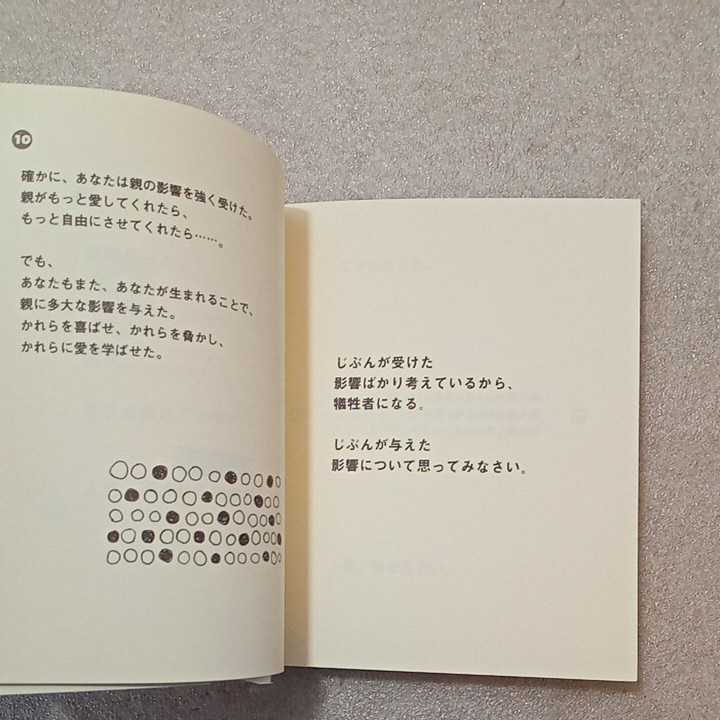 10
確かに、あなたは親の影響を強く受けた。
親がもっと愛してくれたら、
もっと自由にさせてくれたら……。
でも、
あなたもまた、あなたが生まれることで、
親に多大な影響を与えた。
かれらを喜ばせ、かれらを脅かし、
かれらに愛を学ばせた。
じぶんが受けた
影響ばかり考えているから、
犠牲者になる。
じぶんが与えた
影響について思ってみなさい。